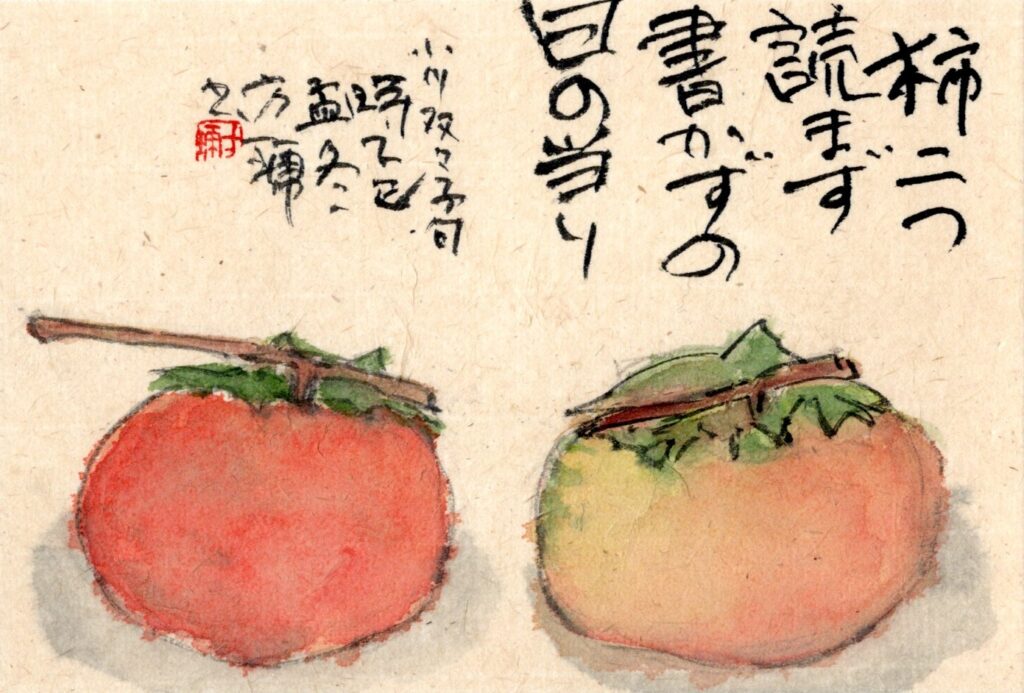 柿二つ
読まず
書かずの
日の当り
小川双々子句
乙巳
孟冬
方